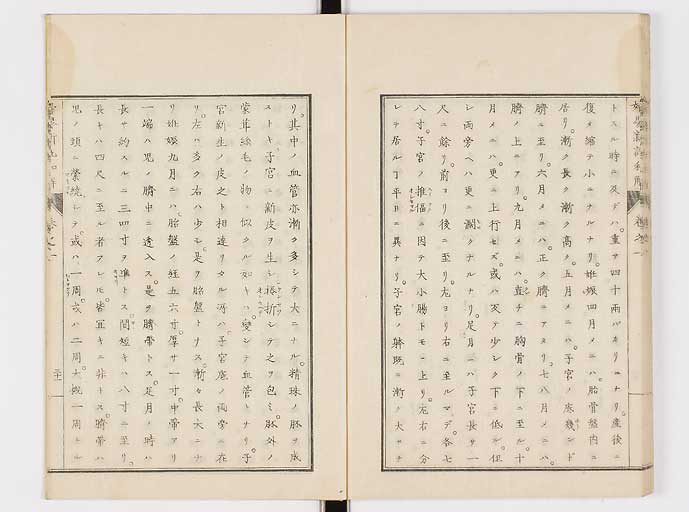 トスル時ニ及デハ重サ四十両バカリニナリ。産後ニ
復タ縮テ小ニナルナリ。姙娠四月メニハ。胎骨盤内ニ
居リ。漸ク長ク漸ク高ク。五月メニハ。子宮ノ底幾ンド
臍ニ至リ。六月メニハ。正ク臍ニアタリ。七八月メニハ。
臍ノ上ニアリ。九月メニハ。直チニ胸骨ノ下ニ至ル。十
月メニハ。更ニ上行セズ。或ハ反テ少シク下ニ低ル。但
シ両旁ヘハ更ニ濶クナルナリ。足月ニハ子宮長サ一
尺ニ餘リ。前ヨリ後ニ至リ。左ヨリ右ニ至ルマデ。各七
八寸。子宮ノ推偪ニ因テ大小腸トモニ上リ。左右ニ分
レテ居ル。丁平日ニ異ナリ。子宮ノ躰既ニ漸ク大ナ
リ。其中ノ血管亦漸ク多シテ大ニナル。精珠ノ胚ヲ成
ストキ子宮ニ新皮ヲ生シ。捲折シテ之ヲ包ミ。胚外ノ
蒙茸絲毛ノ物ニ似タル如キハ。変シテ血管トナリ。子
宮新生ノ皮ト相連リタル所ハ。子宮底ノ両旁ニ在
リ。左ハ多ク右ハ少シ。是ヲ胎盤トナス。漸々長大ニナ
リ姙娠九月ニハ。胎盤ノ経五六寸。厚サ一寸。中帯アリ
一端ハ児ノ臍中ニ透入ス。是ヲ臍帯トス。足月ノ時ハ
長サ約スルニ三四寸ヲ準トス。間短キハ八寸ニ至リ。
長キハ四尺ニ至ル者アレモ。皆冝キニ非トス。臍帯ハ
児ノ頭ニ縈繞シテ。或ハ一周或ハ二周。大概一周トル